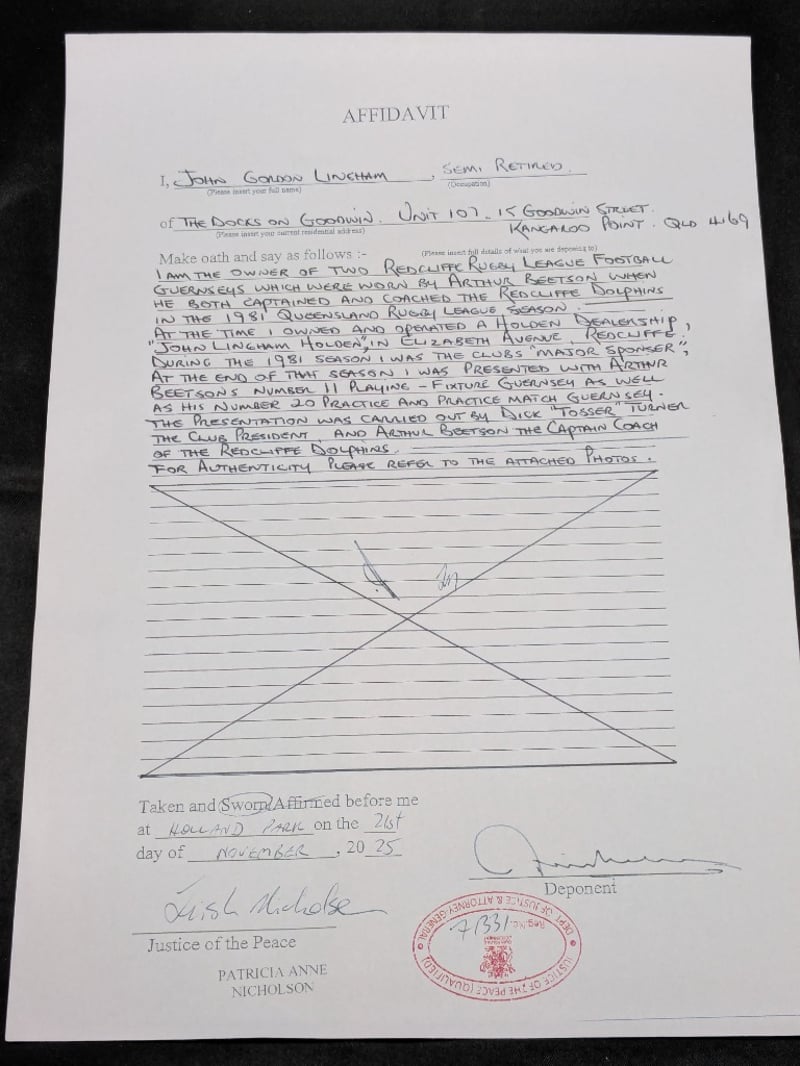 AFFIDAVIT
I, JOHN GORDON LINGHAM, SEMI RETIRED.
(Please insert your full name) (Occupation)
of THE DOCKS ON GOODWIN. UNIT 107 - 15 GOODWIN STREET.
KANGAROO POINT. QLD 4169
(Please insert your current residential address)
Make oath and say as follows :- (Please insert full details of what you are deposing to)
I AM THE OWNER OF TWO REDCLIFFE RUGBY LEAGUE FOOTBALL
GUERNSEYS WHICH WERE WORN BY ARTHUR BEETSON WHEN
HE BOTH CAPTAINED AND COACHED THE REDCLIFFE DOLPHINS
IN THE 1981 QUEENSLAND RUGBY LEAGUE SEASON.
AT THE TIME I OWNED AND OPERATED A HOLDEN DEALERSHIP,
"JOHN LINGHAM HOLDEN", IN ELIZABETH AVENUE, REDCLIFFE.
DURING THE 1981 SEASON I WAS THE CLUBS "MAJOR SPONSER",
AT THE END OF THAT SEASON I WAS PRESENTED WITH ARTHUR
BEETSONS NUMBER 11 PLAYING - FIXTURE GUERNSEY AS WELL
AS HIS NUMBER 20 PRACTICE AND PRACTICE MATCH GUERNSEY.
THE PRESENTATION WAS CARRIED OUT BY DICK "TOSSER" TURNER
THE CLUB PRESIDENT, AND ARTHUR BEETSON THE CAPTAIN COACH
OF THE REDCLIFFE DOLPHINS.
FOR AUTHENTICITY PLEASE REFER TO THE ATTACHED PHOTOS.
Taken and Sworn/Affirmed before me
at HOLLAND PARK on the 21st
day of NOVEMBER, 2025
Deponent
Trish Nicholson
Justice of the Peace
PATRICIA ANNE
NICHOLSON
DEPT. OF JUSTICE & ATTORNEY-GENERAL
Reg. No.
71331
JUSTICE OF THE PEACE (QUALIFIED)